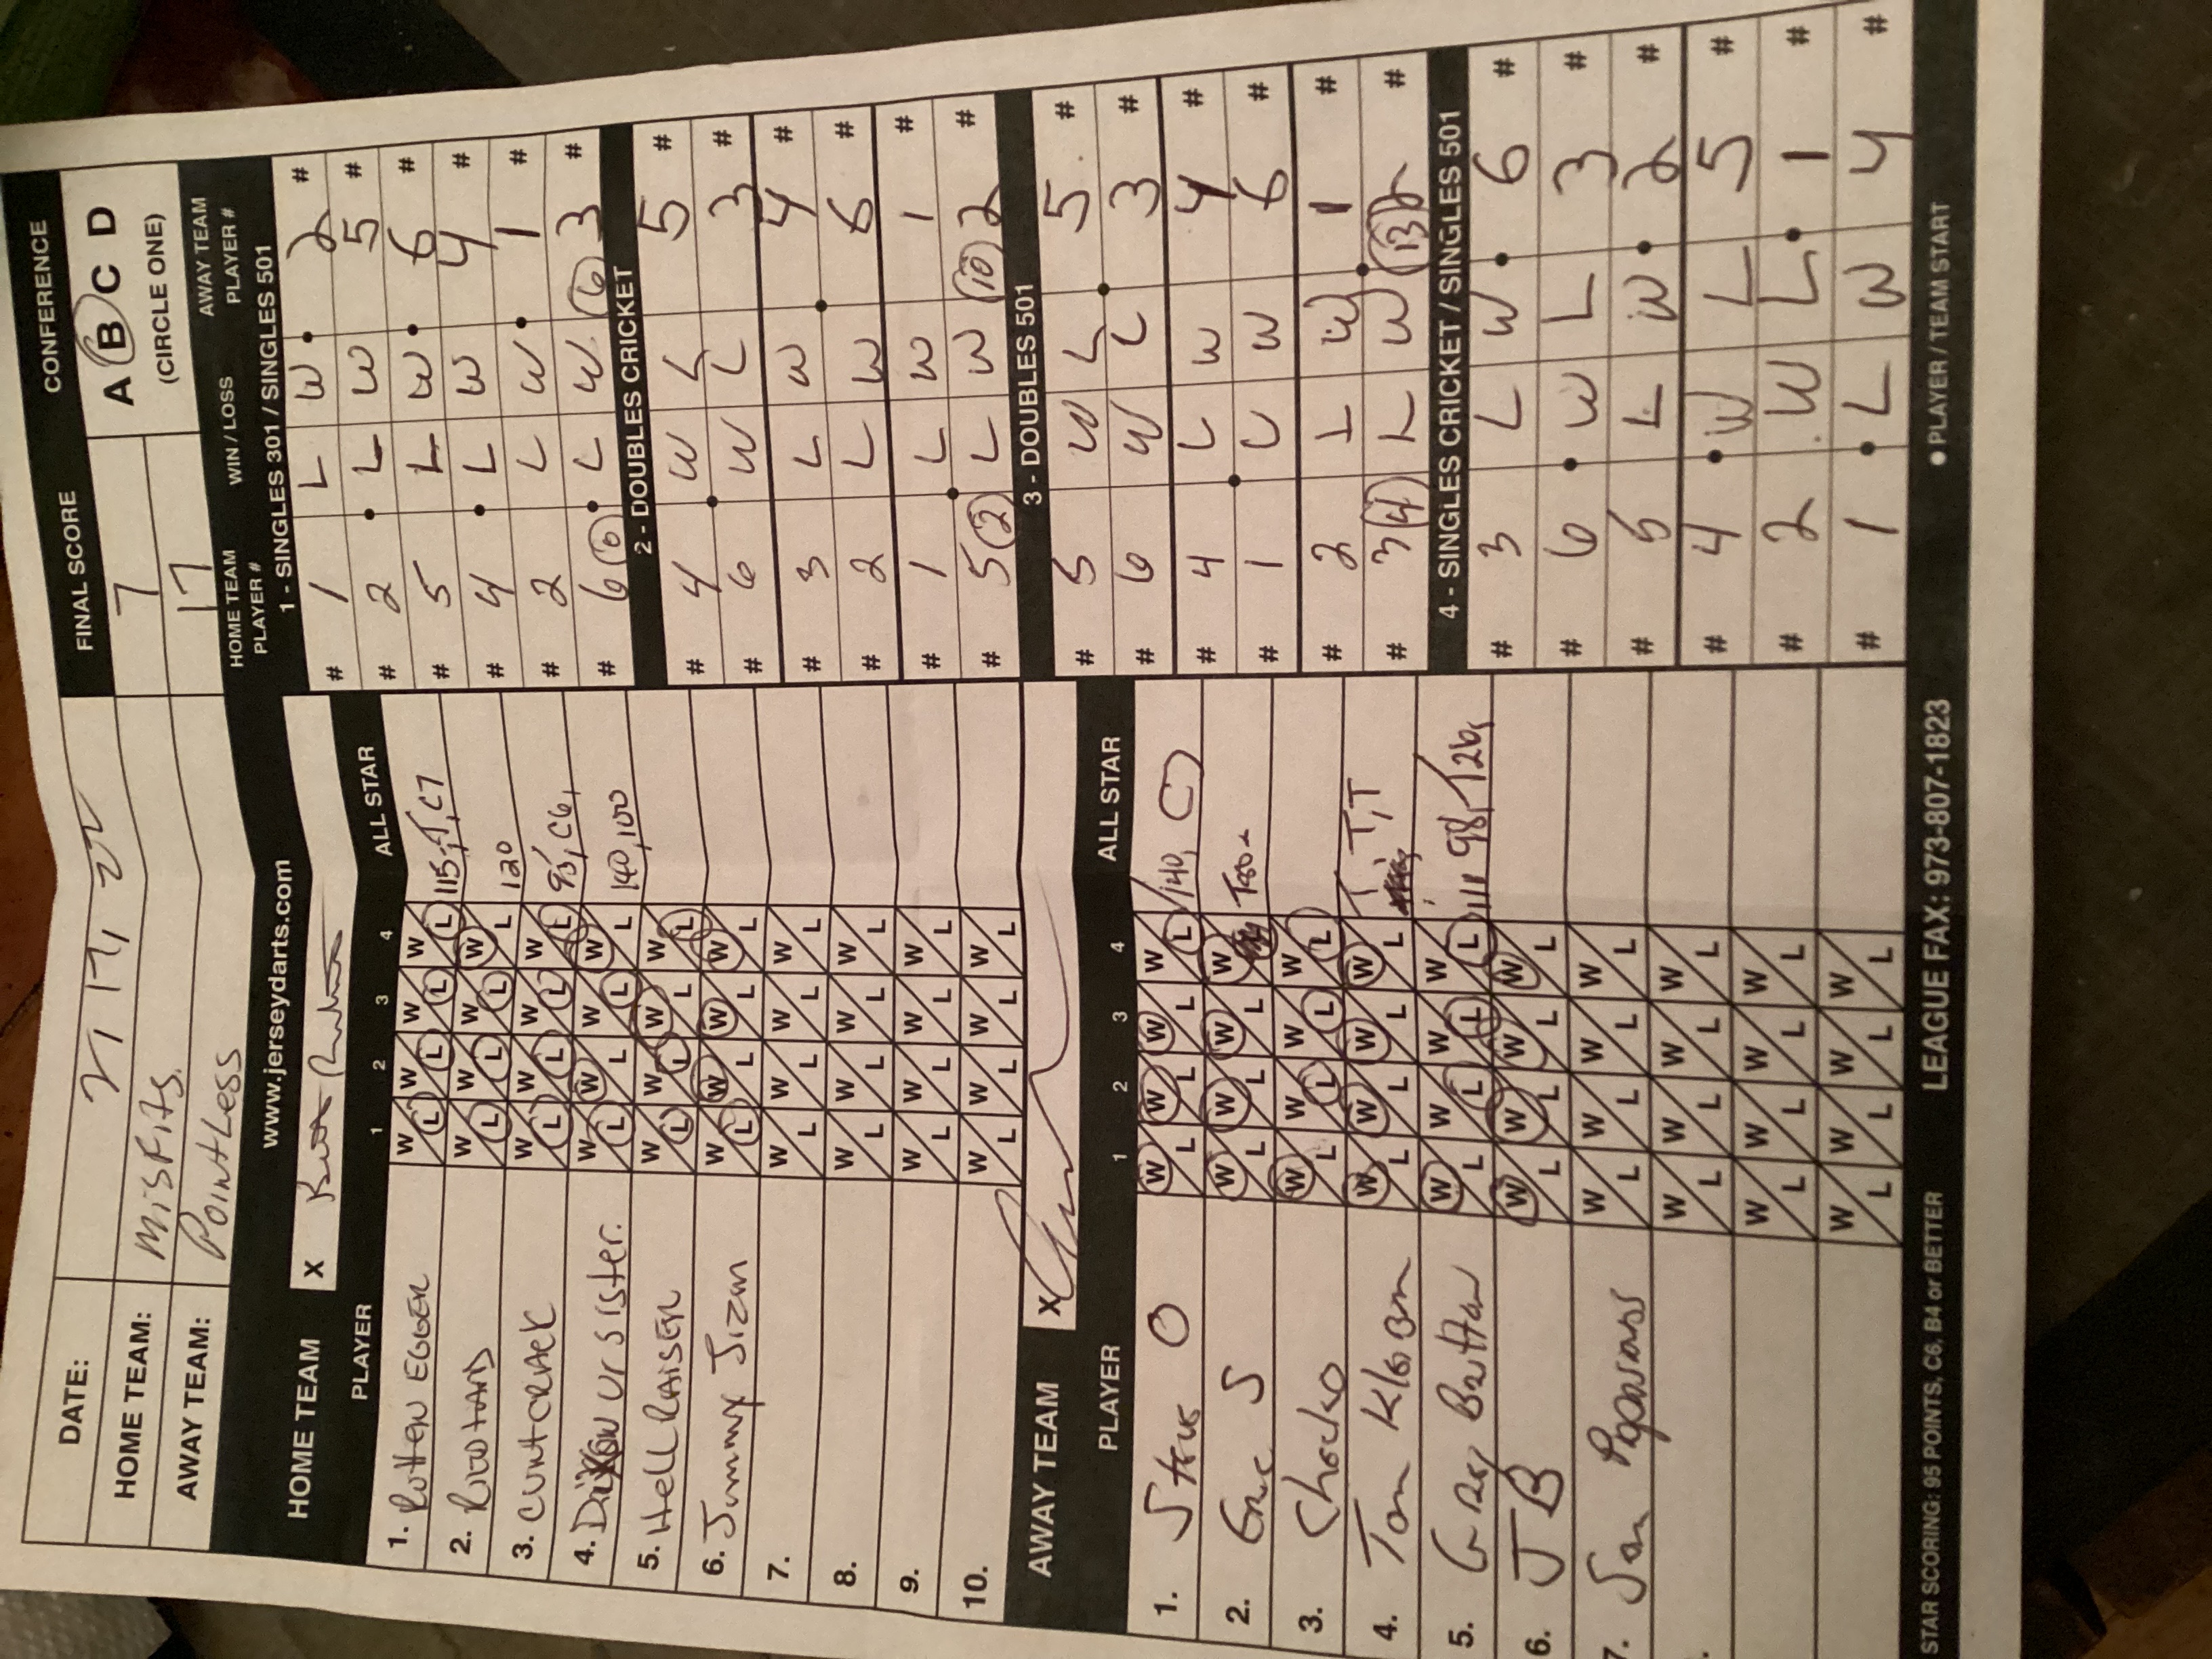 DATE:
HOME TEAM: Misfits
AWAY TEAM: Pointless
FINAL SCORE
7
17
CONFERENCE
A B C D
(CIRCLE ONE)
www.jerseydarts.com
HOME TEAM X
PLAYER 1 2 3 4 ALL STAR
1. Rotten EGGER W L W L W L W L 115, T, C7
2. W L W L W L W L 120
3. CUNTCRACK W L W L W L W L 95, C6,
4. UR SISTER. W L W L W L W L 140, 100
5. HellRAISER W L W L W L W L
6. Jimmy Jizm W L W L W L W L
7. W L W L W L W L
8. W L W L W L W L
9. W L W L W L W L
10. W L W L W L W L
AWAY TEAM X
PLAYER 1 2 3 4 ALL STAR
1. Steve O W L W L W L W L 140,
2. Eric S W L W L W L W L
3. Chocko W L W L W L W L
4. Tom W L W L W L W L T T, T
5. Greg Britton W L W L W L W L 111, 98, 126,
6. JB W L W L W L W L
7. W L W L W L W L
W L W L W L W L
W L W L W L W L
W L W L W L W L
HOME TEAM PLAYER # WIN / LOSS AWAY TEAM PLAYER #
1 - SINGLES 301 / SINGLES 501
# 1 L W 2 #
# 2 L W 5 #
# 5 L W 6 #
# 4 L W 4 #
# 2 L W 1 #
# 6 0 L W 6 3 #
2 - DOUBLES CRICKET
# 4 W L 5 #
# 6 W L 3 #
# 3 L W 4 #
# 2 L W 6 #
# 1 L W 1 #
# 5 2 L W 10 2 #
3 - DOUBLES 501
# 5 W L 5 #
# 6 W L 3 #
# 4 L W 4 #
# 1 L W 6 #
# 2 L W 1 #
# 3 4 L W 13 2 #
4 - SINGLES CRICKET / SINGLES 501
# 3 L W 6 #
# 6 W L 3 #
# 5 L W 2 #
# 4 W L 5 #
# 2 W L 1 #
# 1 L W 4 #
STAR SCORING: 95 POINTS, C6, B4 or BETTER LEAGUE FAX: 973-807-1823 ● PLAYER / TEAM START